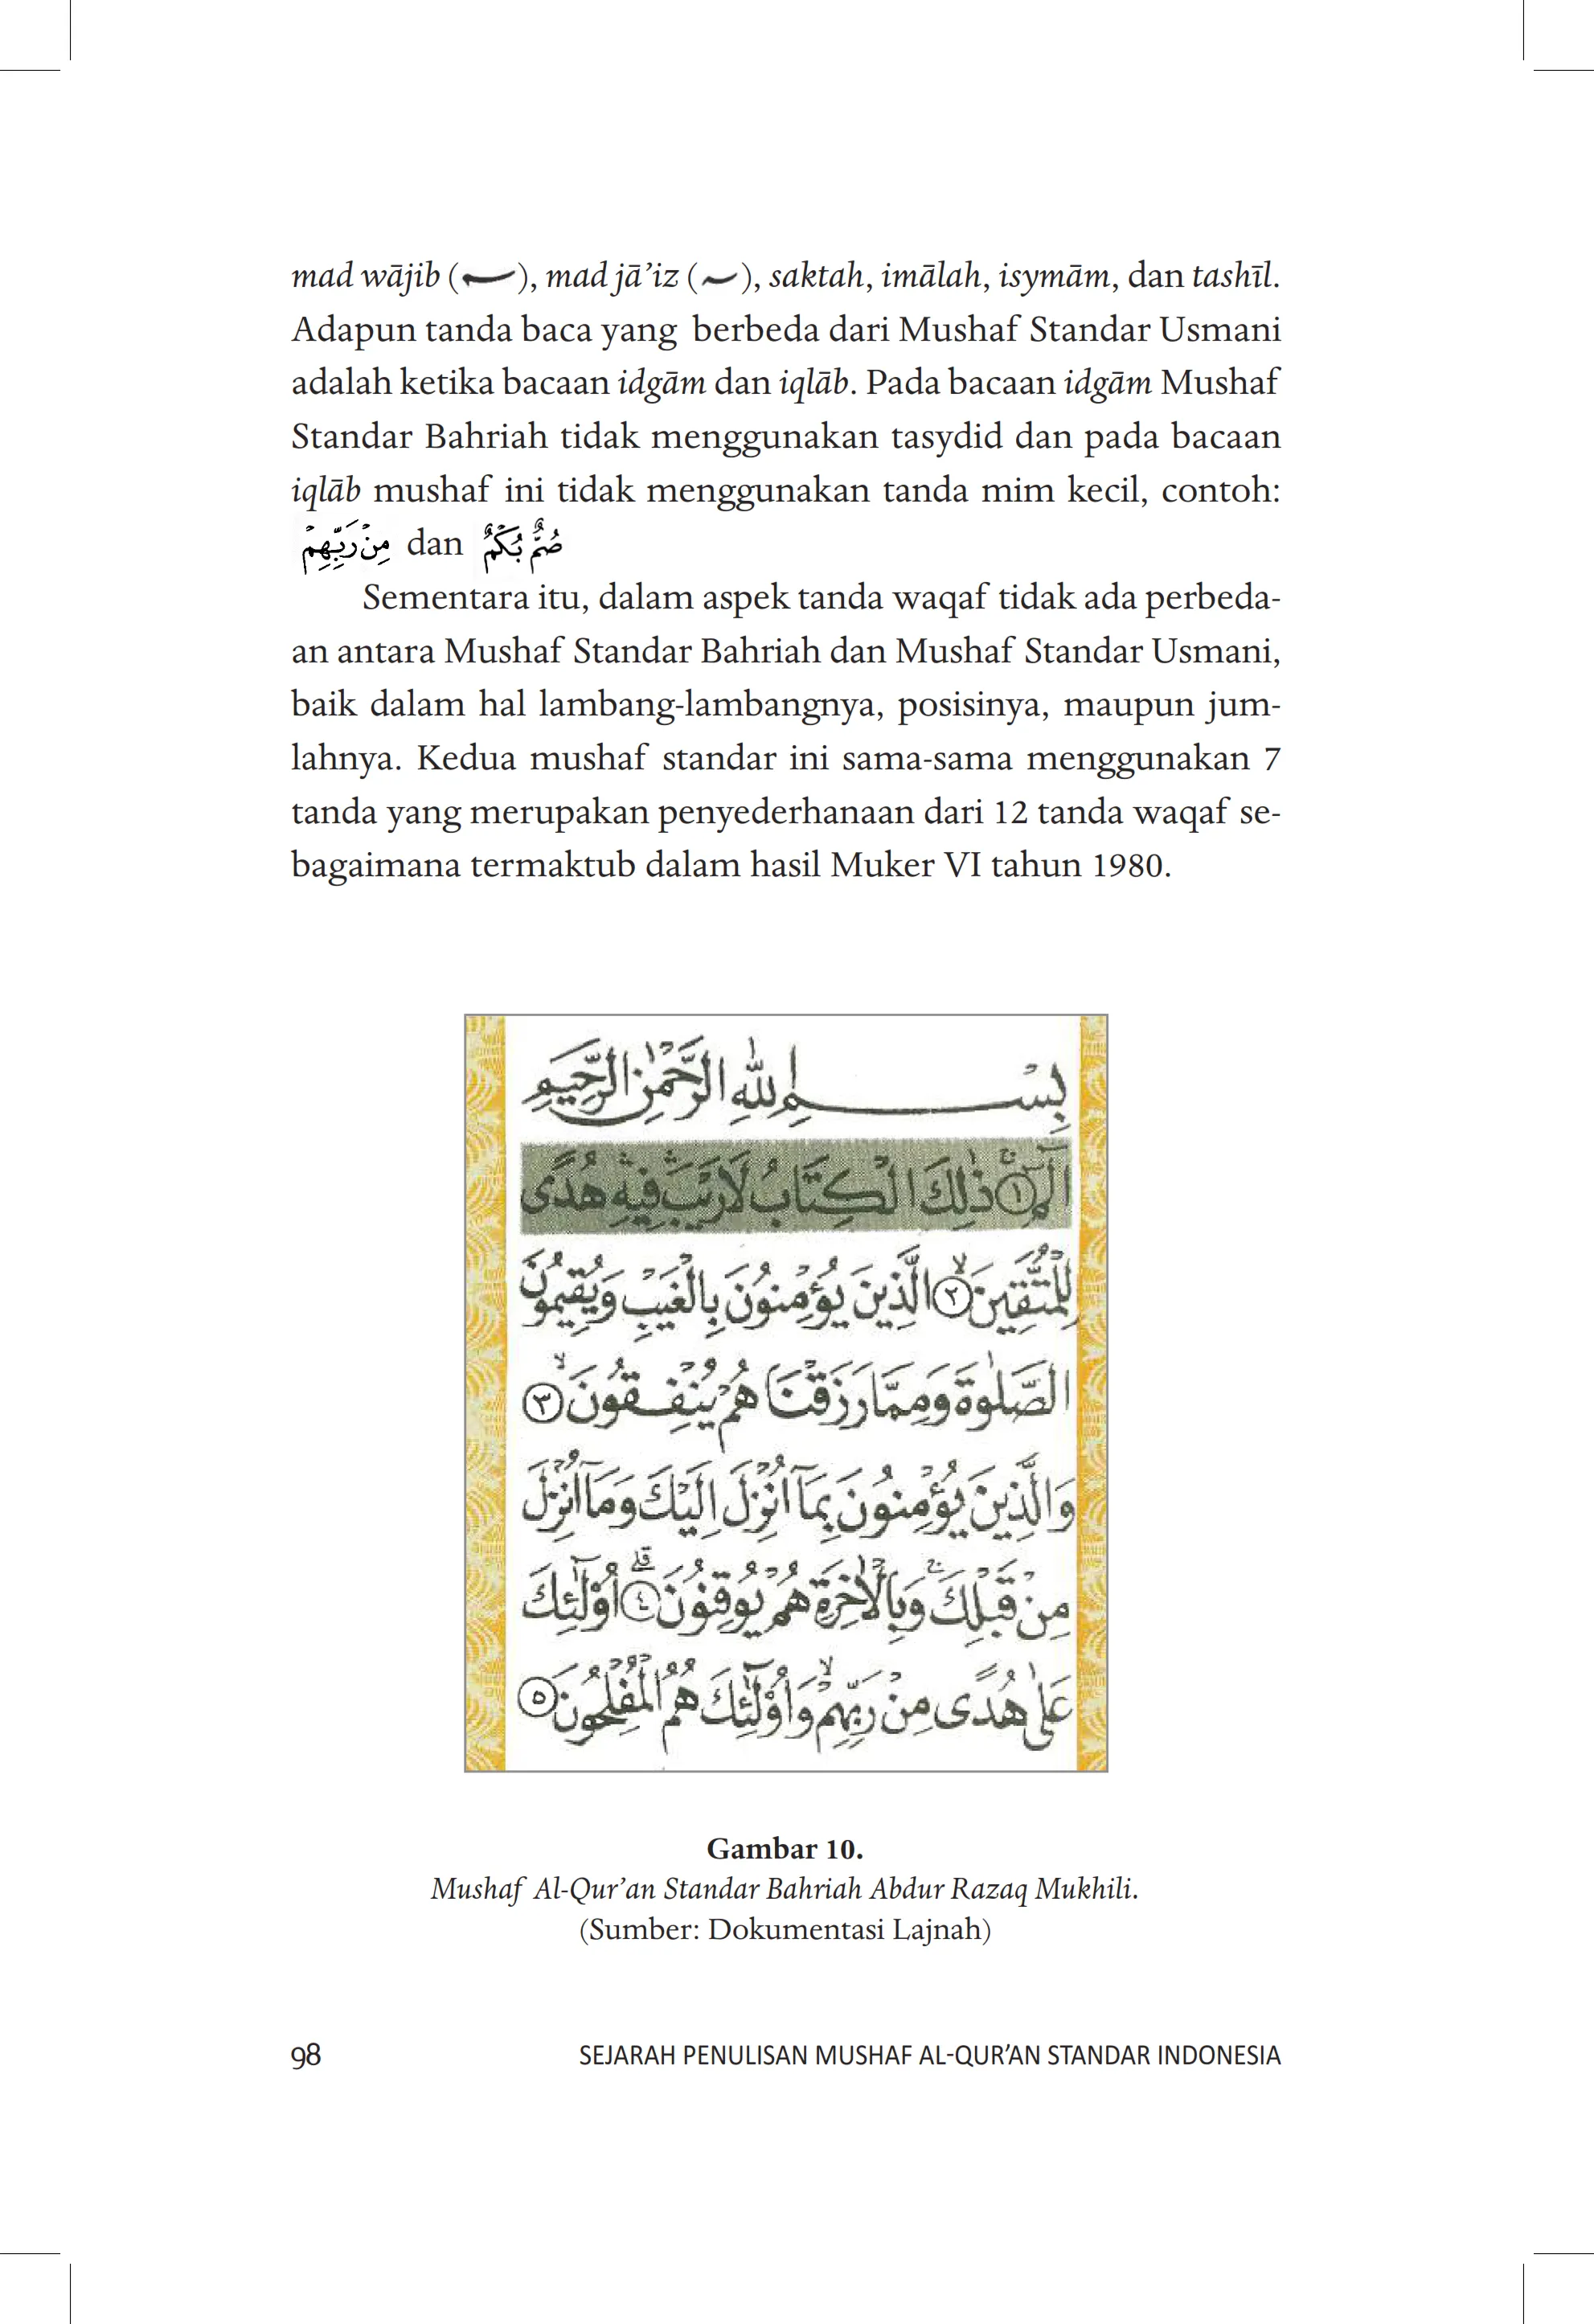 mad wājib (ـــ), mad jā’iz (~), saktah, imālah, isymām, dan tashīl.
Adapun tanda baca yang berbeda dari Mushaf Standar Usmani
adalah ketika bacaan idgām dan iqlāb. Pada bacaan idgām Mushaf
Standar Bahriah tidak menggunakan tasydid dan pada bacaan
iqlāb mushaf ini tidak menggunakan tanda mim kecil, contoh:
مِنْ رَبِّهِمْ dan صُمٌّ بُكْمٌ
Sementara itu, dalam aspek tanda waqaf tidak ada perbeda-
an antara Mushaf Standar Bahriah dan Mushaf Standar Usmani,
baik dalam hal lambang-lambangnya, posisinya, maupun jum-
lahnya. Kedua mushaf standar ini sama-sama menggunakan 7
tanda yang merupakan penyederhanaan dari 12 tanda waqaf se-
bagaimana termaktub dalam hasil Muker VI tahun 1980.
بِسْمِ اللهِ الرَّحْمٰنِ الرَّحِيْمِ
الٓمٓ ۚ ١ ذٰلِكَ الْكِتَابُ لَا رَيْبَ ۛ فِيْهِ ۛ هُدًى
لِلْمُتَّقِيْنَ ۙ ٢ الَّذِيْنَ يُؤْمِنُوْنَ بِالْغَيْبِ وَيُقِيْمُوْنَ
الصَّلٰوةَ وَمِمَّا رَزَقْنَا هُمْ يُنْفِقُوْنَ ۙ ٣
وَالَّذِيْنَ يُؤْمِنُوْنَ بِمَآ اُنْزِلَ اِلَيْكَ وَمَآ اُنْزِلَ
مِنْ قَبْلِكَ ۚ وَبِالْاٰخِرَةِ هُمْ يُوْقِنُوْنَ ۗ ٤ اُولٰٓئِكَ
عَلٰى هُدًى مِنْ رَبِّهِمْ ۙ وَاُولٰٓئِكَ هُمُ الْمُفْلِحُوْنَ ٥
Gambar 10.
Mushaf Al-Qur’an Standar Bahriah Abdur Razaq Mukhili.
(Sumber: Dokumentasi Lajnah)
98 SEJARAH PENULISAN MUSHAF AL-QUR’AN STANDAR INDONESIA